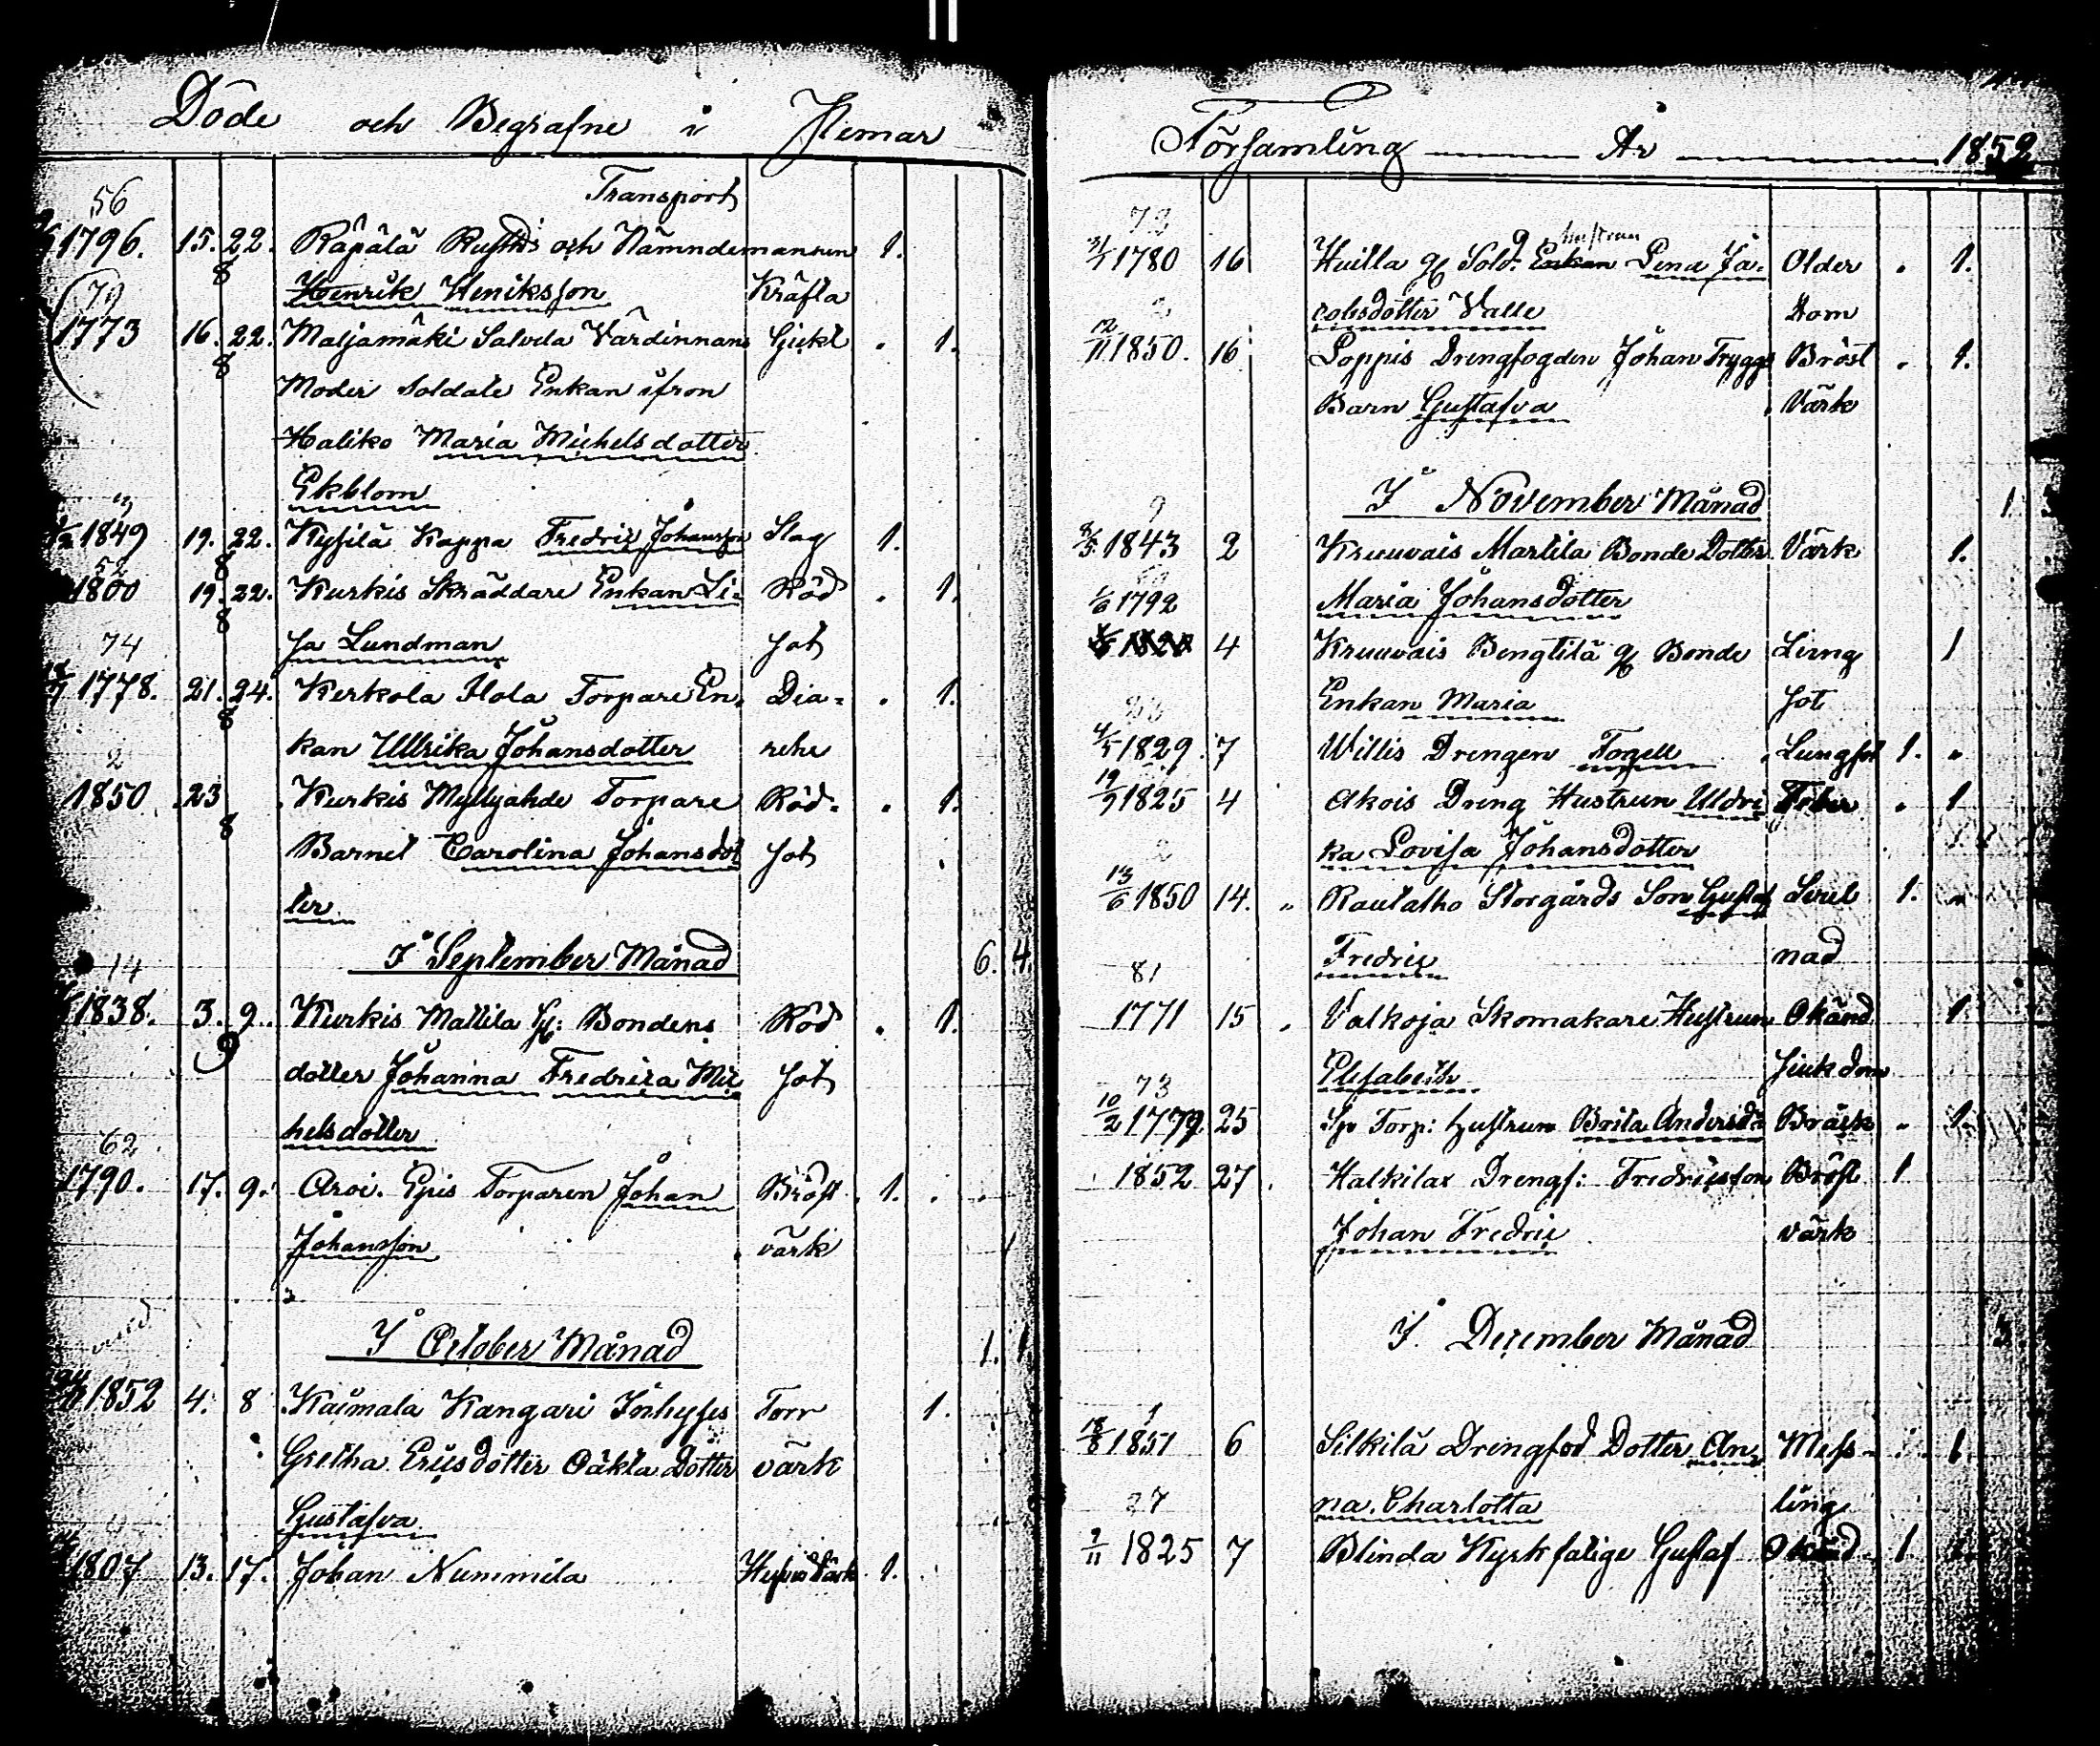 Döde och Begrafne i Hemar
56 Transport
1796. 15. 22. Räpälä Rusth: och Nämndemannen 1.
8 Henrik Heniksson Kräfta
79
1773 16. 22. Maljamäki Salvda Värdinnans Gickt . 1.
8 Moder Soldate Enkan ifron
Haliko Maria Michelsdotter
Ekblom
3
1849 19. 22. Kyfilä Kappa Fredric Johansson Slag 1.
52 8
1800 19. 22. Kurkis Skräddare Enkan Li- Röd . 1.
74 8 sa Lundman sot
1778. 21. 24. Kerkola Ilola Torpare En- Dia- . 1.
8
2 kan Ullrika Johansdotter rehe
1850 23 Kurkis Myllyahde Torpare Röd- . 1.
8
Barnet Carolina Johansdot sot
ter
I September Månad 6. 4.
14
1838. 3. 9. Kurkis Mattila Bondens Röd . 1.
9
dotter Johanna Fredrica Mic sot
helsdotter
62
1790. 17. 9. Aroi. Epis Torparen Johan Bröst 1.
Johansson värk
I October Månad 1. 1.
1852 4. 8 Kaimala Kangari Inhyses Torr 1.
Gretha Ericsdotter Oäkta Dotter värk
Gustafva
1807 13. 17. Johan Nummila 1.
Församling År 1852
72
31/1 1780 16 Huilla Sold. Enkan hustrun Lena Ja- Older . 1.
2 cobsdotter Valle dom
12/11 1850. 16 Loppis Drengfogden Johan Tryggs Bröst . 1.
Barn Gustafva Värk
I November Månad 1. 3
9
8/5 1843 2 Kruuvais Martila Bonde Dotter Värk 1.
1/6 1792 Maria Johansdotter
1820 4 Kruuvais Bengtilä Bonde Lung 1
Enkan Maria sot
4/5 1829. 7 Willis Drengen Togell Lungsot 1. "
19/9 1825 4 Akois Dreng Hustrun Uldri Feber . 1
2 ka Lovisa Johansdotter
13/6 1850 14. " Rautalho Storgårds Son Gustaf 1. "
81 Fredric nad
1771 15 . Valkoja Skomakare Hustrun Okänd 1
73 Elisabeth sjukdom
10/2 1779 25 Torp: hustrun Brita Andersdr Bräck " 1.
1852 27 . Halkilax Drengs: Fredricsson Bröst 1
Johan Fredric värk
I December Månad 3.
1
18/8 1851 6 Silkilä Drengfod Dotter An- Mess- 1.
27 na Charlotta ling
2/11 1825 7 Blinda Kyrkfatige Gustaf Okänd 1.